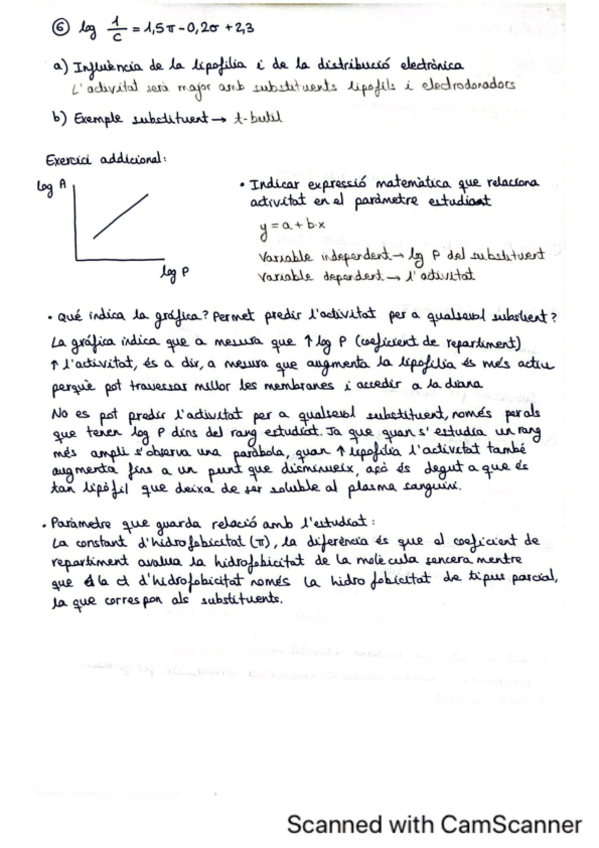 ⑥ log 1/c = 1,5π - 0,2σ + 2,3
a) Influència de la lipofília i de la distribució electrònica
L'activitat serà major amb substituents lipòfils i electrodonadors
b) Exemple substituent → t-butil
Exercici addicional:
log A
log P
• Indicar expressió matemàtica que relaciona
activitat en el paràmetre estudiant
y = a + b·x
Variable independent → log P del substituent
Variable dependent → l'activitat
• Qué indica la gràfica? Permet predir l'activitat per a qualsevol substient?
La gràfica indica que a mesura que ↑ log P (coeficient de repartiment)
↑ l'activitat, és a dir, a mesura que augmenta la lipofília és més actiu
perquè pot travessar millor les membranes i accedir a la diana
No es pot predir l'activitat per a qualsevol substituent, només per als
que tenen log P dins del rang estudiat. Ja que quan s'estudia un rang
més ampli s'observa una paràbola, quan ↑ lipofília l'activitat també
augmenta fins a un punt que disminueix, açò és degut a que és
tan lipòfil que deixa de ser soluble al plasma sanguini.
• Paràmetre que guarda relació amb l'estudiat:
La constant d'hidrofobicitat (π), la diferència és que el coeficient de
repartiment avalua la hidrofobicitat de la molècula sencera mentre
que la ct d'hidrofobicitat només la hidrofobicitat de tipus parcial,
la que correspon als substituents.
Scanned with CamScanner